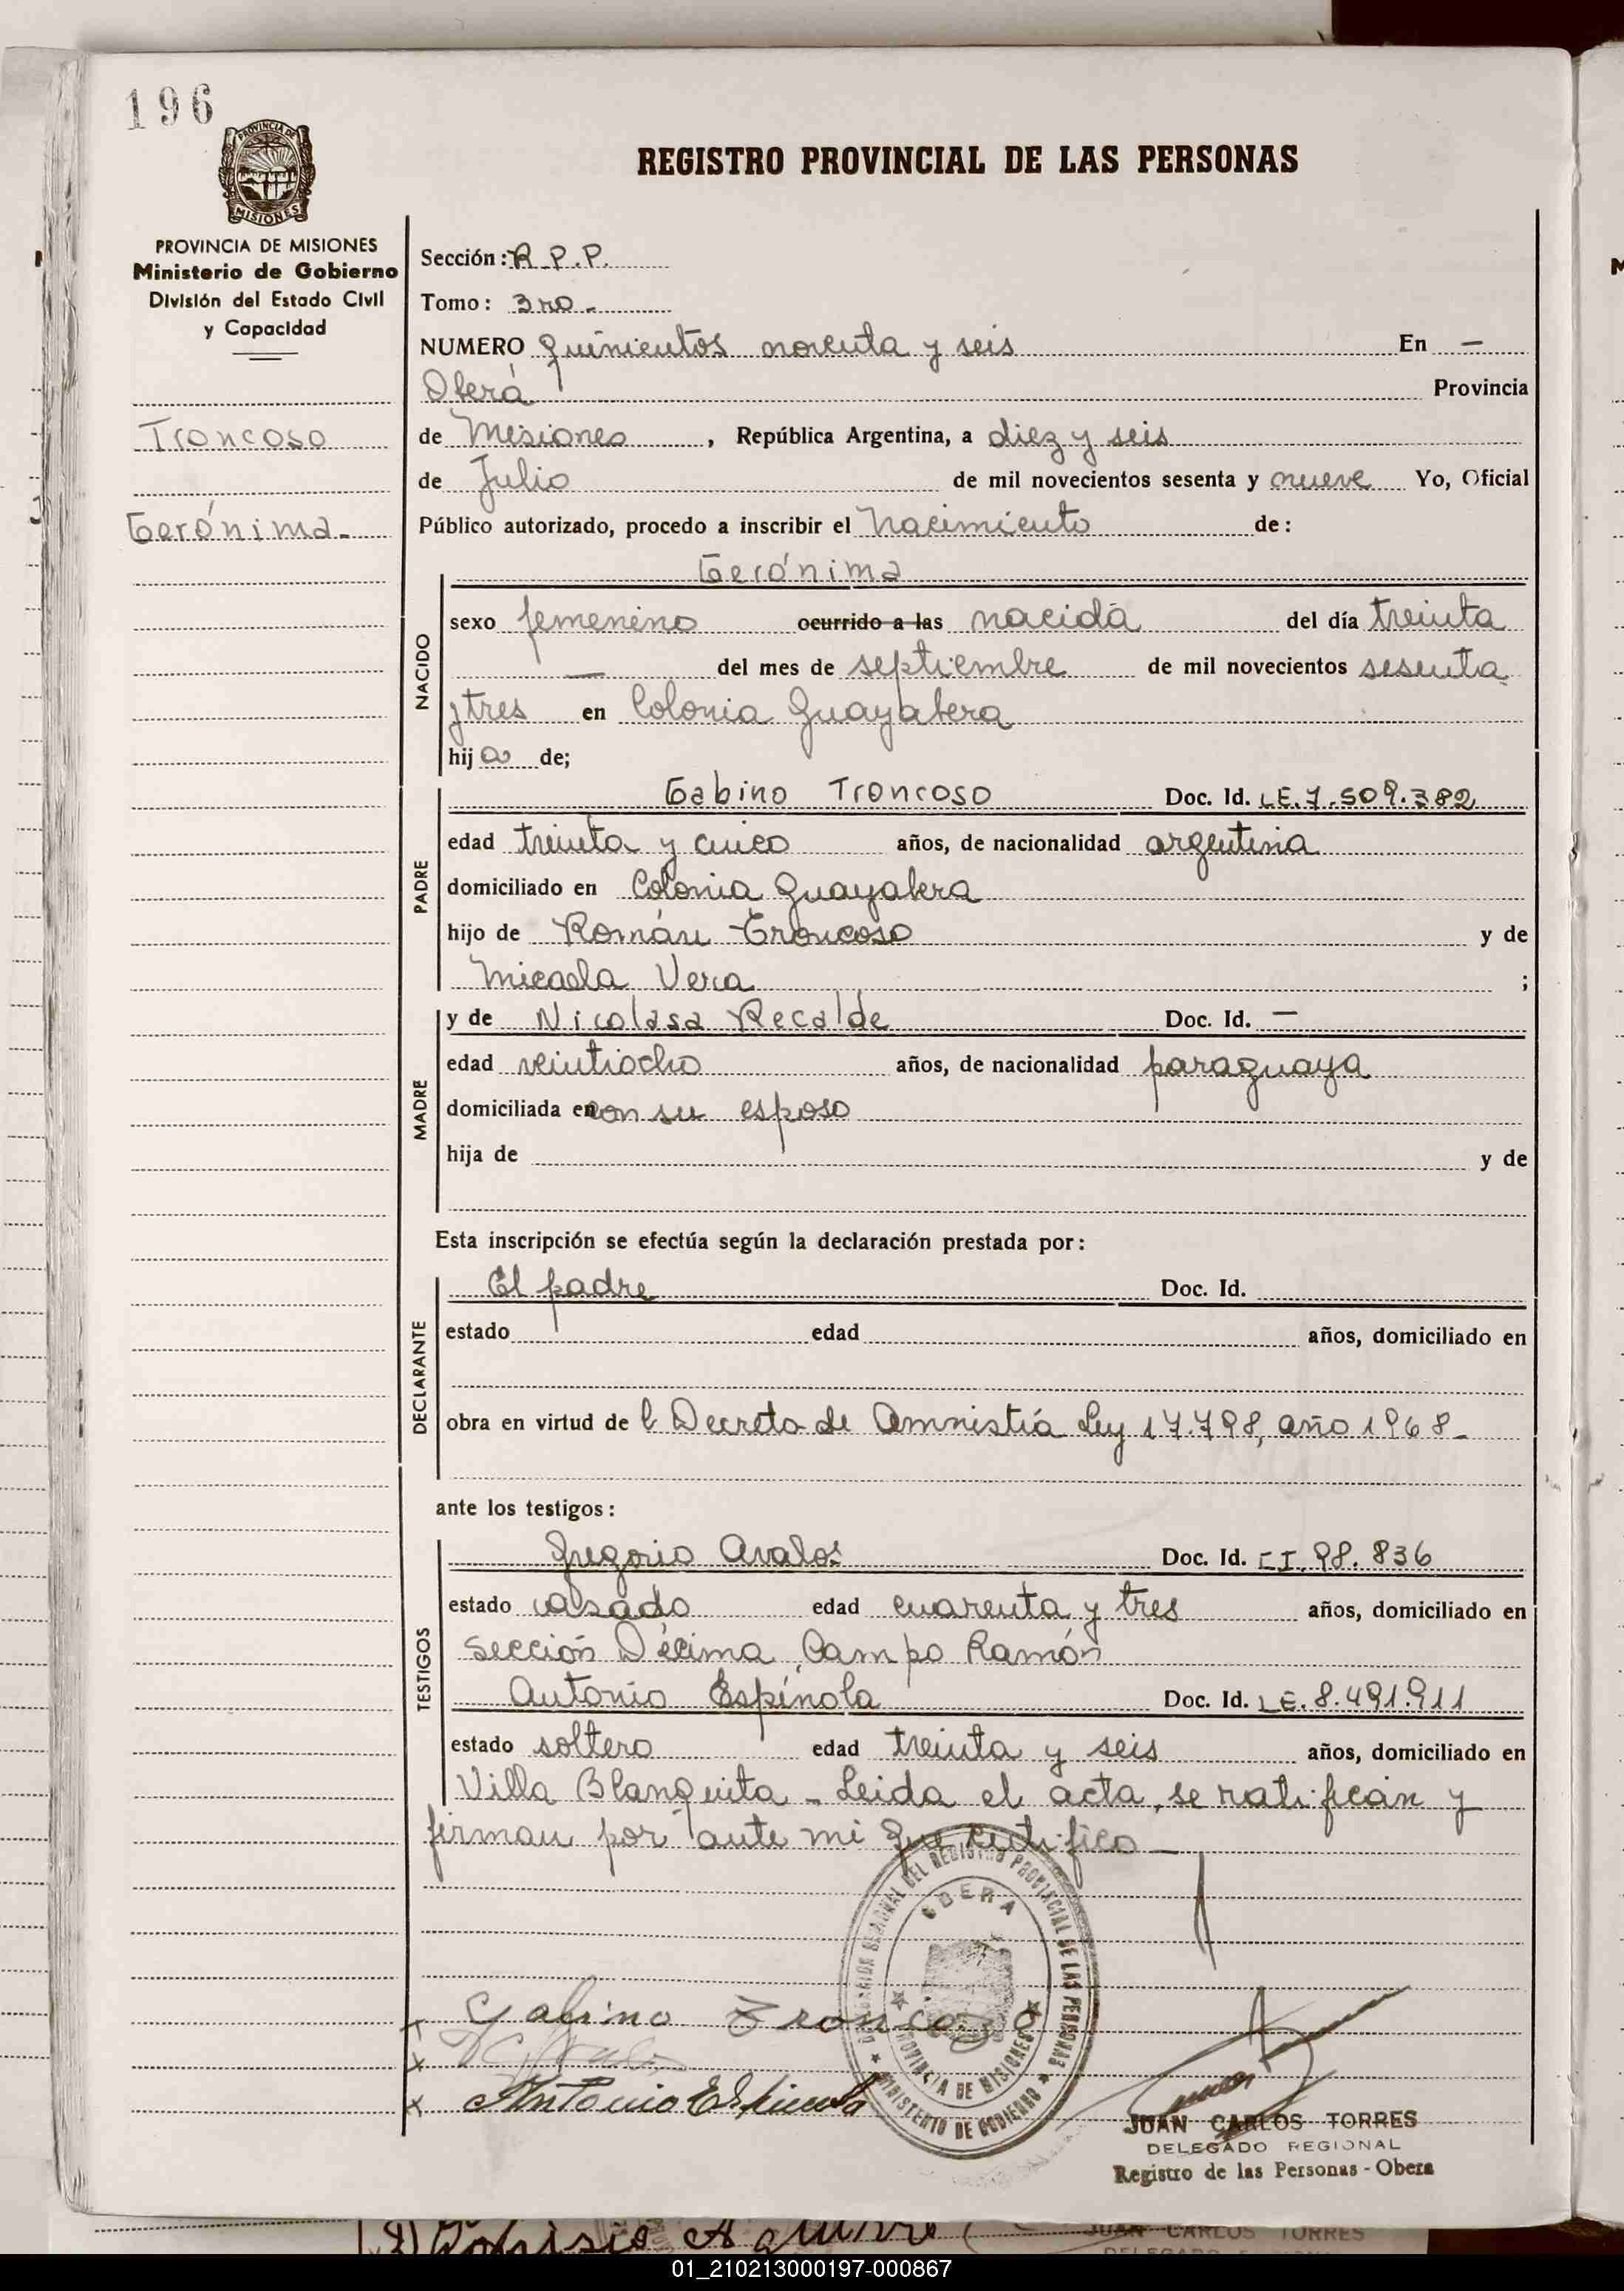 196
PROVINCIA DE
MISIONES
REGISTRO PROVINCIAL DE LAS PERSONAS
PROVINCIA DE MISIONES
Ministerio de Gobierno
División del Estado Civil
y Capacidad
Troncoso
Gerónima.
Sección: R.P.P.
Tomo: 3ro.
NUMERO Quinientos noventa y seis En —
Oberá Provincia
de Misiones, República Argentina, a diez y seis
de Julio de mil novecientos sesenta y nueve Yo, Oficial
Público autorizado, procedo a inscribir el Nacimiento de:
NACIDO
Gerónima
sexo femenino ocurrido a las nacida del día treinta
— del mes de septiembre de mil novecientos sesenta
y tres en Colonia Guayabera
hija de;
PADRE
Gabino Troncoso Doc. Id. LE.7.509.382
edad treinta y cinco años, de nacionalidad argentina
domiciliado en Colonia Guayabera
hijo de Román Troncoso y de
Micaela Vera ;
MADRE
y de Nicolasa Recalde Doc. Id. —
edad veintiocho años, de nacionalidad paraguaya
domiciliada en con su esposo
hija de y de
Esta inscripción se efectúa según la declaración prestada por:
DECLARANTE
El padre Doc. Id.
estado edad años, domiciliado en
obra en virtud de l Decreto de Amnistía Ley 17.798, año 1968-
ante los testigos:
TESTIGOS
Gregorio Avalos Doc. Id. CI. 98.836
estado casado edad cuarenta y tres años, domiciliado en
Sección Décima, Campo Ramón
Antonio Espínola Doc. Id. LE.8.491.911
estado soltero edad treinta y seis años, domiciliado en
Villa Blanquita - Leida el acta, se ratifican y
firman por ante mi que certifico —
DELEGACION REGIONAL DEL REGISTRO PROVINCIAL DE LAS PERSONAS
OBERA
PROVINCIA DE MISIONES
MINISTERIO DE GOBIERNO
x Gabino Troncoso
x
x Antonio Espinola
JUAN CARLOS TORRES
DELEGADO REGIONAL
Registro de las Personas - Obera
JUAN CARLOS TORRES
01_210213000197-000867